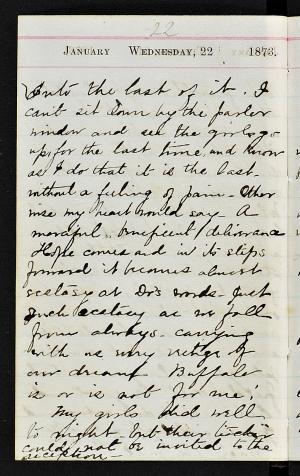 22
JANUARY WEDNESDAY, 22 1873.
Into the last of it. I
can't sit down by the parlor
window and see the girls go
up, for the last time, and know
as I do that it is the last
without a feeling of pain - Other
wise my heart would say A
merciful, beneficent deliverance
Hope comes and in its steps
forward it becomes almost
ecstasy at Dr's words. Just
such ecstacy as we fall
from always - carrying
with us every vestige of
our dream Buffalo
is or is not for me!
My girls did well
to night but their teacher
could not be invited to the
reception -